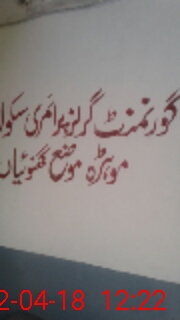 گورنمنٹ گرلز پرائمری سکول
موہڑہ موضع گگنوئیاں
2-04-18 12:22